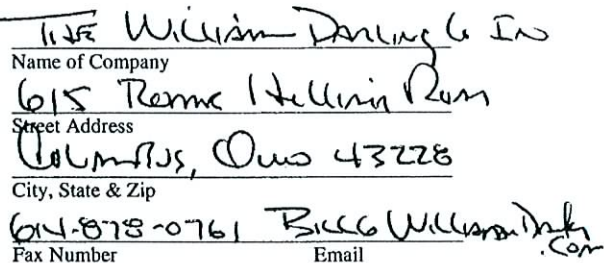 THE William Darling Co In
Name of Company
615 Hilliard Rom
Street Address
Columbus, Ohio 43228
City, State & Zip
614-878-0761
.com
Fax Number Email